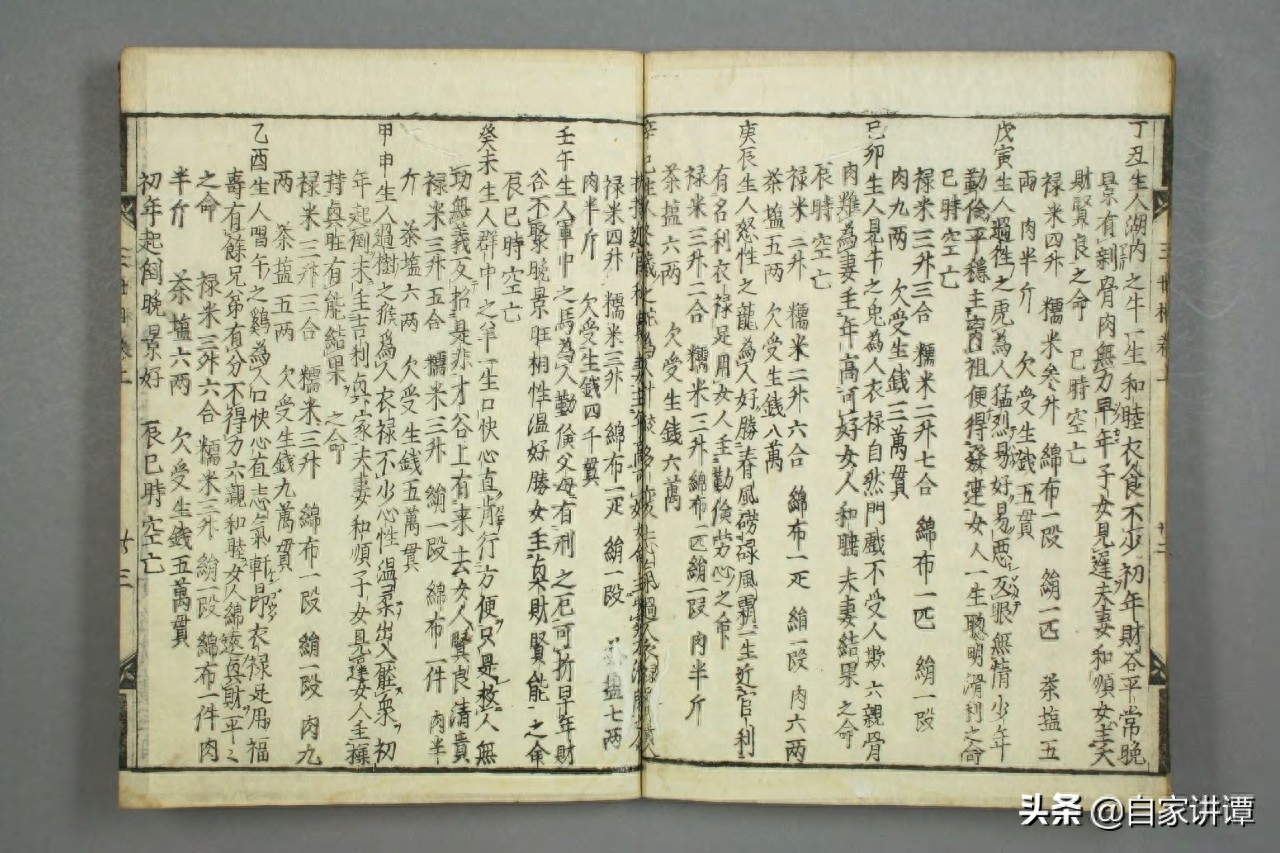 丁丑生人湖内之牛一生和睦衣食不少初年財谷平常晚
景有剝骨肉無力早年子女見遲夫妻和順女主大
財賢良之命 巳時空亡
禄米四升 糯米參升 綿布一段 絹一匹 茶塩五
兩 肉半斤 欠受生銭五貫
戊寅生人過牲之虎為人猛烈易好易悪反眼無情少年
勤倹平穏主离祖便得發達女人一生聰明滑利之命
巳時空亡
禄米三升三合 糯米二升七合 綿布一匹 絹一段
肉九两 欠受生銭一三萬貫
己卯生人見牛之兎為人衣禄自然門戲不受人欺六親骨
肉難為妻主年高可好女人和睦夫妻結果之命
辰時空亡
禄米二升 糯米二升六合 綿布一疋 絹一段 肉六兩
茶塩五两 欠受生銭八萬
庚辰生人怒性之龍為人好勝春風磅碌風霜一生近官利
有名利衣禄足用女人主勤倹労心之命
禄米三升二合 糯米二升 綿布一匹 絹一段 肉半斤
茶塩六两 欠受生銭六萬
辛巳生人
禄米四升 糯米三升 綿布一疋 絹一段 塩七两
肉半斤 欠受生銭四千貫
壬午生人軍中之馬為人勤倹父母有刑之厄可折早年財
谷不聚晩景旺相性温好勝女主奐財賢能之命
辰巳時空亡
癸未生人群中之羊一生口快心直肯行方便只是救人無
功無義反招是非才谷上有来去女人賢良清貴
禄米三升五合 糯米三升 絹一段 綿布一件 肉半
斤 茶塩六两 欠受生銭五萬貫
甲申生人過樹之猴為人衣禄不少心性温柔出入壓衆初
年起倒未主吉利奐家夫妻和順子女見遲女人主操
持奐旺有能結果之命
禄米三升三合 糯米三升 綿布一段 絹一段 肉九
两 茶塩五两 欠受生銭九萬貫
乙酉生人唱午之鷄為人口快心直志氣軒昂衣禄足用福
壽有餘兄弟有分不得力六親和睦女人綿遠奐財平々
之命 禄米三升六合 糯米三升 絹一段 綿布一件 肉
半斤 茶塩六两 欠受生銭五萬貫
初年起倒晩景好 辰巳時空亡
廿三
头条 @自家讲谭